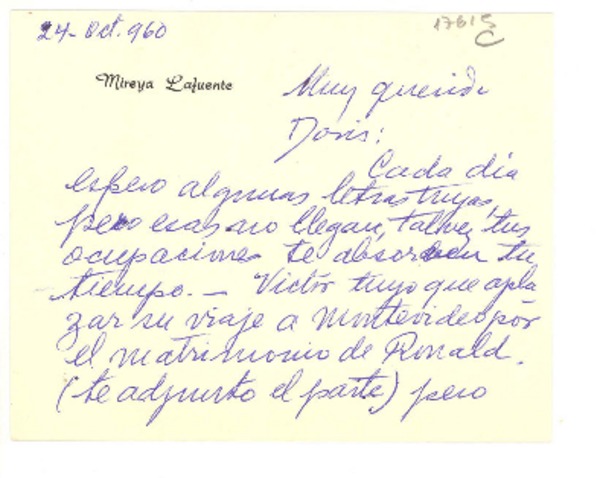 24- Oct. 960
17615
C
Mireya Lafuente
Muy querida
Doris:
Cada día
espero algunas letras tuyas,
pero esas no llegan, talvez tus
ocupaciones te absorben tu
tiempo. — Victor tuvo que apla
zar su viaje a Montevideo por
el matrimonio de Ronald.
(te adjunto el parte) pero